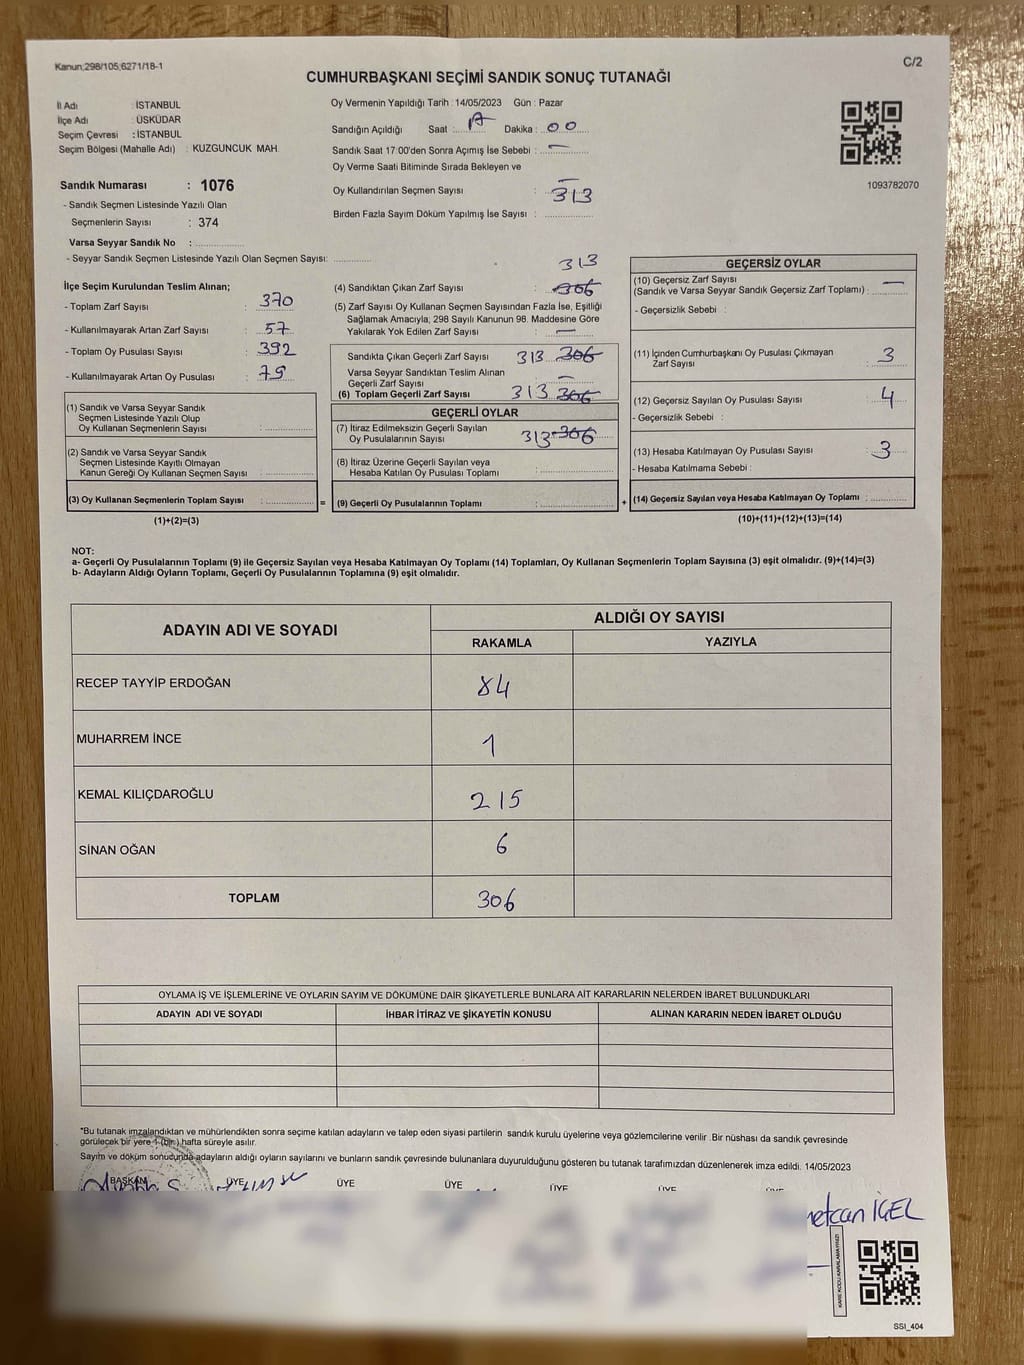 Kanun;298/105;6271/18-1
C/2
CUMHURBAŞKANI SEÇİMİ SANDIK SONUÇ TUTANAĞI
İl Adı : İSTANBUL
İlçe Adı : ÜSKÜDAR
Seçim Çevresi : İSTANBUL
Seçim Bölgesi (Mahalle Adı) : KUZGUNCUK MAH.
Sandık Numarası : 1076
- Sandık Seçmen Listesinde Yazılı Olan
Seçmenlerin Sayısı : 374
Varsa Seyyar Sandık No :
- Seyyar Sandık Seçmen Listesinde Yazılı Olan Seçmen Sayısı:
Oy Vermenin Yapıldığı Tarih : 14/05/2023 Gün : Pazar
Sandığın Açıldığı Saat : 17 Dakika : 00
Sandık Saat 17:00'den Sonra Açımış İse Sebebi : —
Oy Verme Saati Bitiminde Sırada Bekleyen ve
Oy Kullandırılan Seçmen Sayısı : 313
Birden Fazla Sayım Döküm Yapılmış İse Sayısı :
1093782070
İlçe Seçim Kurulundan Teslim Alınan;
- Toplam Zarf Sayısı : 370
- Kullanılmayarak Artan Zarf Sayısı : 57
- Toplam Oy Pusulası Sayısı : 392
- Kullanılmayarak Artan Oy Pusulası : 79
(1) Sandık ve Varsa Seyyar Sandık
Seçmen Listesinde Yazılı Olup
Oy Kullanan Seçmenlerin Sayısı :
(2) Sandık ve Varsa Seyyar Sandık
Seçmen Listesinde Kayıtlı Olmayan
Kanun Gereği Oy Kullanan Seçmen Sayısı :
(3) Oy Kullanan Seçmenlerin Toplam Sayısı :
=
(1)+(2)=(3)
313
(4) Sandıktan Çıkan Zarf Sayısı : 306
(5) Zarf Sayısı Oy Kullanan Seçmen Sayısından Fazla İse, Eşitliği
Sağlamak Amacıyla; 298 Sayılı Kanunun 98. Maddesine Göre
Yakılarak Yok Edilen Zarf Sayısı : —
Sandıkta Çıkan Geçerli Zarf Sayısı 313 306
Varsa Seyyar Sandıktan Teslim Alınan
Geçerli Zarf Sayısı : —
(6) Toplam Geçerli Zarf Sayısı 313 306
GEÇERLİ OYLAR
(7) İtiraz Edilmeksizin Geçerli Sayılan
Oy Pusulalarının Sayısı 313 306
(8) İtiraz Üzerine Geçerli Sayılan veya
Hesaba Katılan Oy Pusulası Toplamı :
(9) Geçerli Oy Pusulalarının Toplamı :
+
GEÇERSİZ OYLAR
(10) Geçersiz Zarf Sayısı
(Sandık ve Varsa Seyyar Sandık Geçersiz Zarf Toplamı) : —
- Geçersizlik Sebebi :
(11) İçinden Cumhurbaşkanı Oy Pusulası Çıkmayan
Zarf Sayısı : 3
(12) Geçersiz Sayılan Oy Pusulası Sayısı : 4
- Geçersizlik Sebebi :
(13) Hesaba Katılmayan Oy Pusulası Sayısı : 3
- Hesaba Katılmama Sebebi :
(14) Geçersiz Sayılan veya Hesaba Katılmayan Oy Toplamı :
(10)+(11)+(12)+(13)=(14)
NOT:
a- Geçerli Oy Pusulalarının Toplamı (9) ile Geçersiz Sayılan veya Hesaba Katılmayan Oy Toplamı (14) Toplamları, Oy Kullanan Seçmenlerin Toplam Sayısına (3) eşit olmalıdır. (9)+(14)=(3)
b- Adayların Aldığı Oyların Toplamı, Geçerli Oy Pusulalarının Toplamına (9) eşit olmalıdır.
ADAYIN ADI VE SOYADI
ALDIĞI OY SAYISI
RAKAMLA YAZIYLA
RECEP TAYYİP ERDOĞAN 84
MUHARREM İNCE 1
KEMAL KILIÇDAROĞLU 215
SİNAN OĞAN 6
TOPLAM 306
OYLAMA İŞ VE İŞLEMLERİNE VE OYLARIN SAYIM VE DÖKÜMÜNE DAİR ŞİKAYETLERLE BUNLARA AİT KARARLARIN NELERDEN İBARET BULUNDUKLARI
ADAYIN ADI VE SOYADI İHBAR İTİRAZ VE ŞİKAYETİN KONUSU ALINAN KARARIN NEDEN İBARET OLDUĞU
*Bu tutanak imzalandıktan ve mühürlendikten sonra seçime katılan adayların ve talep eden siyasi partilerin sandık kurulu üyelerine veya gözlemcilerine verilir .Bir nüshası da sandık çevresinde
görülecek bir yere 1 (bir ) hafta süreyle asılır.
Sayım ve döküm sonucunda adayların aldığı oyların sayılarını ve bunların sandık çevresinde bulunanlara duyurulduğunu gösteren bu tutanak tarafımızdan düzenlenerek imza edildi. 14/05/2023
BAŞKAN ÜYE ÜYE ÜYE ÜYE ÜYE ÜYE
İGEL
SSI_404